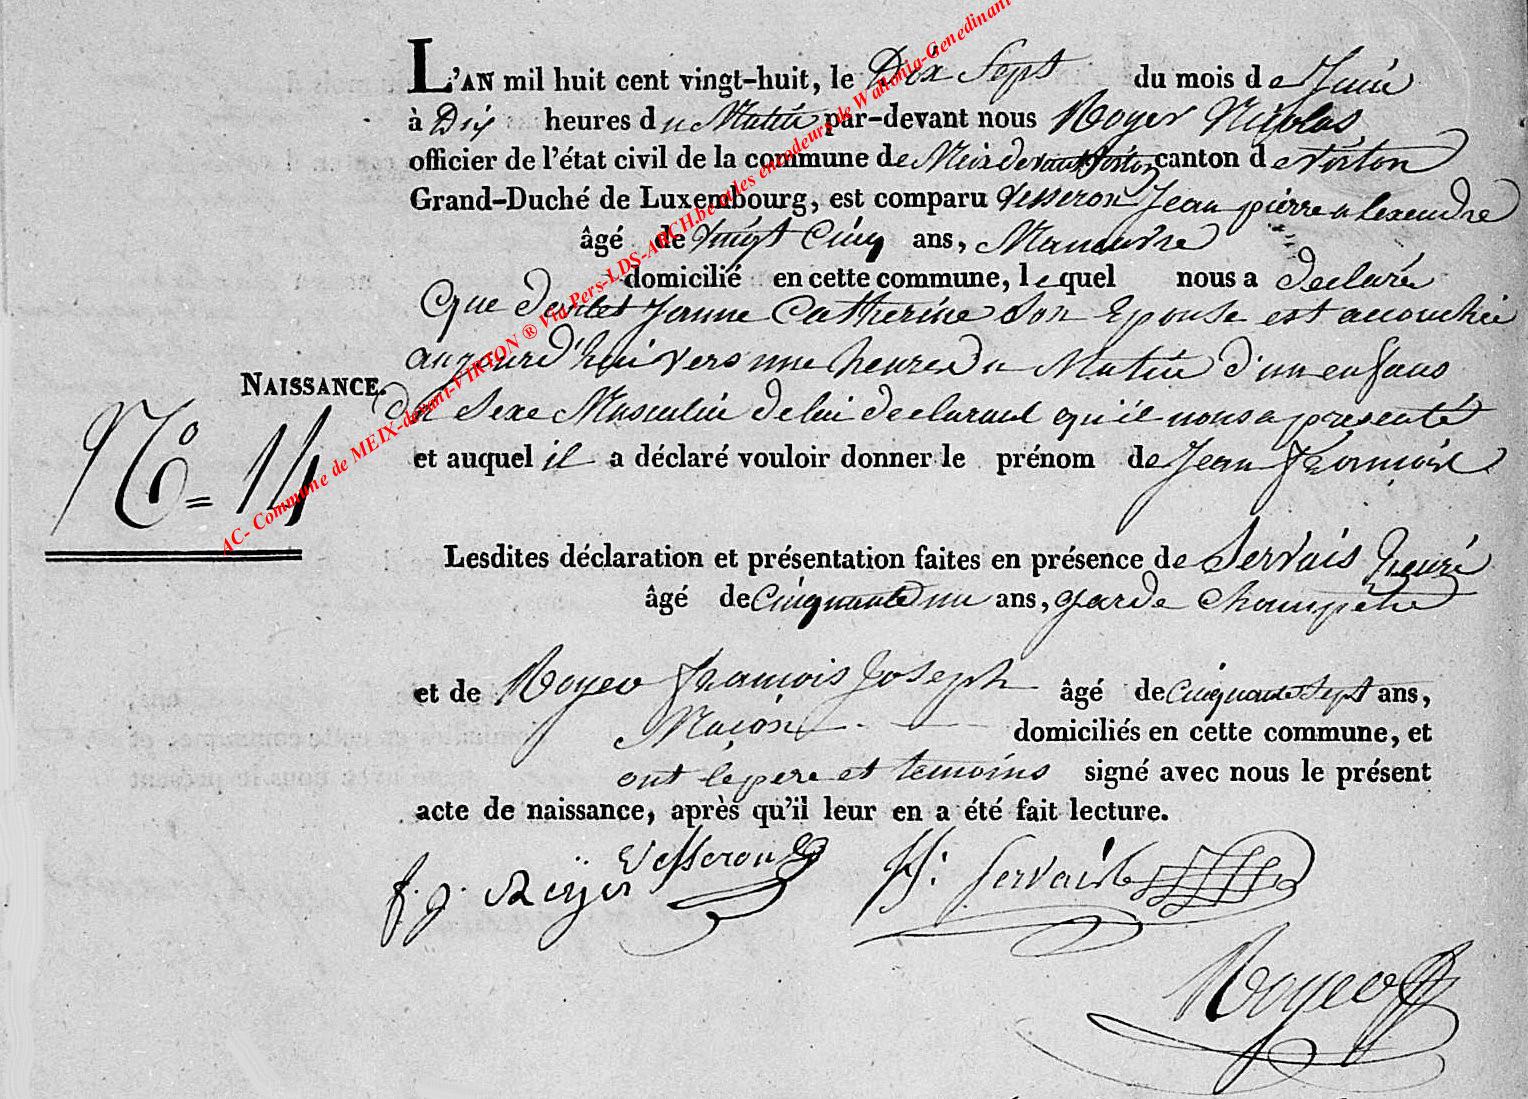 L'AN mil huit cent vingt-huit, le Dix Sept du mois de Juin
à Dix heures du Matin par-devant nous Royer Nicolas
officier de l'état civil de la commune de Meix devant Virton canton de Virton
Grand-Duché de Luxembourg, est comparu Vesseron Jean pierre alexendre
âgé de Vingt Cinq ans, Manuvre
domicilié en cette commune, lequel nous a declaré
Que Jeanne Catherine Son Epouse est accouchée
aujourd'hui vers une heure du Matin d'un enfans
NAISSANCE.
du Sexe Masculin de lui declarant qu'il nous a presenté
N° = 14
et auquel il a déclaré vouloir donner le prénom de Jean François
Lesdites déclaration et présentation faites en présence de Servais henri
âgé de Cinquante un ans, garde Champetre
et de Royer francois Joseph âgé de Cinquante Sept ans,
Maçon domiciliés en cette commune, et
ont le pere et temoins signé avec nous le présent
acte de naissance, après qu'il leur en a été fait lecture.
f. j. Röyer Vesseron H: Servais
Royer
AC- Commune de MEIX-devant-VIRTON ® Via Pers-LDS-ARCH.be et les encodeurs de Wallonia-Genedinant